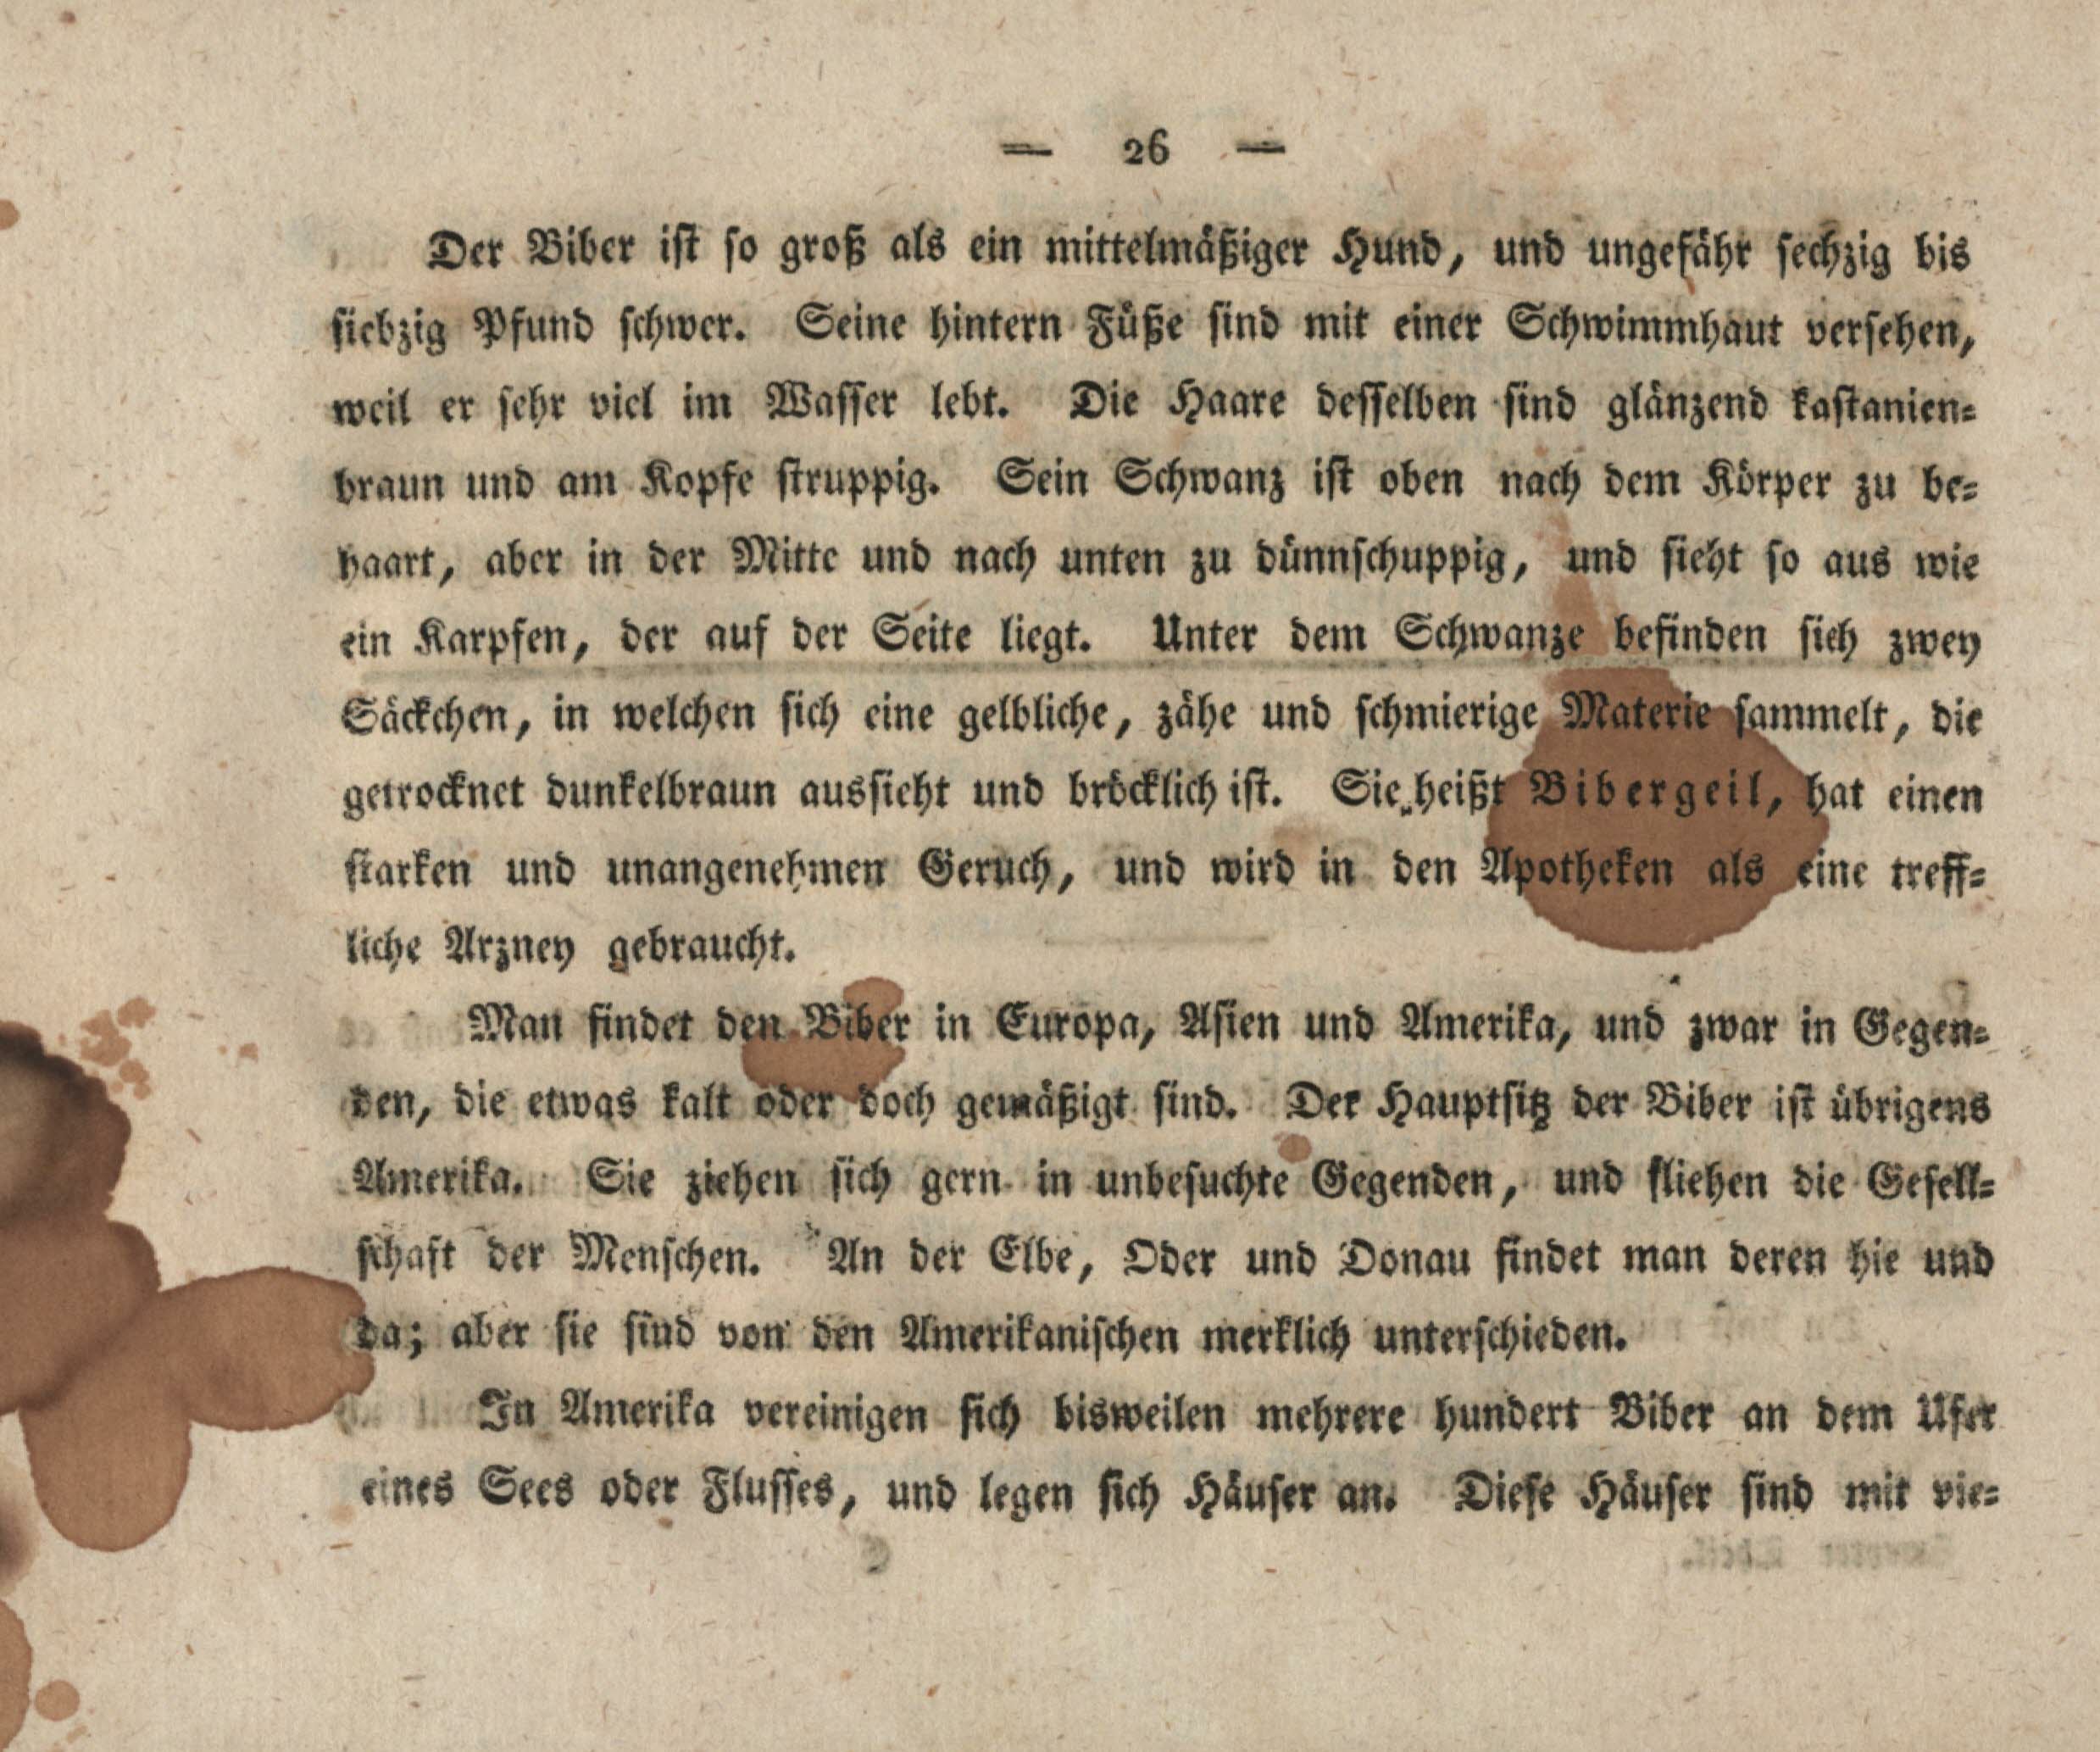 — 26 —
Der Biber ist so groß als ein mittelmäßiger Hund, und ungefähr sechzig bis
siebzig Pfund schwer. Seine hintern Füße sind mit einer Schwimmhaut versehen,
weil er sehr viel im Wasser lebt. Die Haare desselben sind glänzend kastanien-
braun und am Kopfe struppig. Sein Schwanz ist oben nach dem Körper zu be-
haart, aber in der Mitte und nach unten zu dünnschuppig, und sieht so aus wie
ein Karpfen, der auf der Seite liegt. Unter dem Schwanze befinden sich zwey
Säckchen, in welchen sich eine gelbliche, zähe und schmierige Materie sammelt, die
getrocknet dunkelbraun aussieht und bröcklich ist. Sie heißt Bibergeil, hat einen
starken und unangenehmen Geruch, und wird in den Apotheken als eine treff-
liche Arzney gebraucht.
Man findet den Biber in Europa, Asien und Amerika, und zwar in Gegen-
den, die etwas kalt oder doch gemäßigt sind. Der Hauptsitz der Biber ist übrigens
Amerika. Sie ziehen sich gern in unbesuchte Gegenden, und fliehen die Gesell-
schaft der Menschen. An der Elbe, Oder und Donau findet man deren hie und
da; aber sie sind von den Amerikanischen merklich unterschieden.
In Amerika vereinigen sich bisweilen mehrere hundert Biber an dem Ufer
eines Sees oder Flusses, und legen sich Häuser an. Diese Häuser sind mit vie-